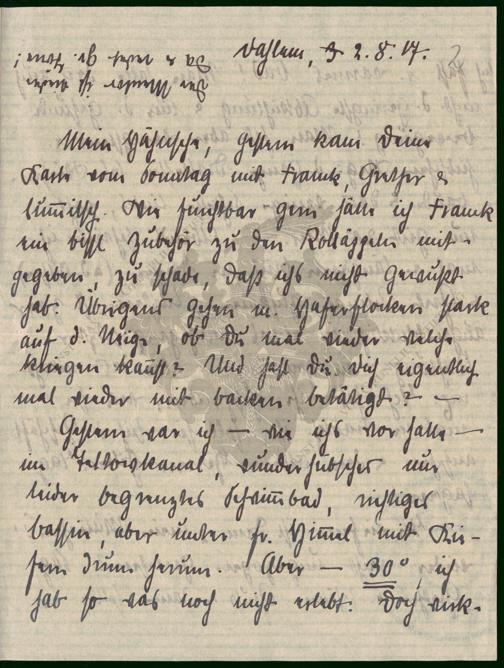 Dahlem, D 2.8.17.
Mein Häschische, gestern kam Deine
Karte vom Sonntag mit Franck, Grether &
Wie furchtbar gern hätte ich Franck
ein bissl Zubehör zu den Rolläppeln mit-
gegeben, zu schade, daß ichs nicht gewußt
hab. Übrigens gehen m. Haferflocken stark
auf d. Neige, ob Du mal wieder welche
kriegen kannst? Und hast Du Dich eigentlich
mal wieder mit backen betätigt? —
Gestern war ich — wie ichs vor hatte —
im Teltowkanal, wunderhübsches nur
leider begrenztes Schwimmbad, richtiges
bassin, aber unter fr. Himmel mit Kie-
fern drum herum. Aber — 30°, ich
hab so was noch nicht erlebt. Doch wirk-